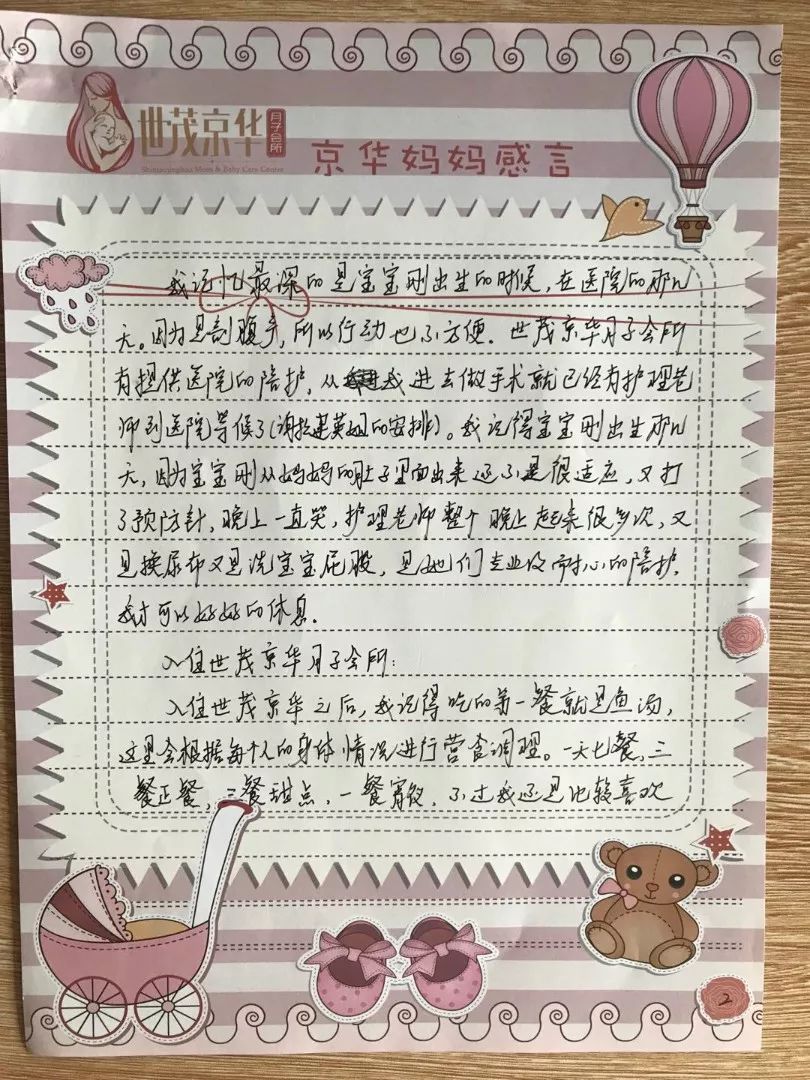 世茂京华
月子会所
Shimaojinghua Mom & Baby Care Centre
京华妈妈感言
我记忆最深的是宝宝刚出生的时候,在医院的那几
天。因为是剖腹产,所以行动也不方便。世茂京华月子会所
有提供医院的陪护,从我进去做手术就已经有护理老
师到医院等候了(谢护建英姐的安排)。我记得宝宝刚出生那几
天,因为宝宝刚从妈妈的肚子里面出来还不是很适应,又打
了预防针,晚上一直哭,护理老师整个晚上起来很多次,又
是换尿布又是洗宝宝屁股,是她们专业及耐心的陪护,
我才可以好好的休息.
入住世茂京华月子会所:
入住世茂京华之后,我记得吃的第一餐就是鱼汤,
这里会根据每个人的身体情况进行营食调理。一天七餐,三
餐正餐,三餐甜点,一餐宵夜,不过我还是比较喜欢
2